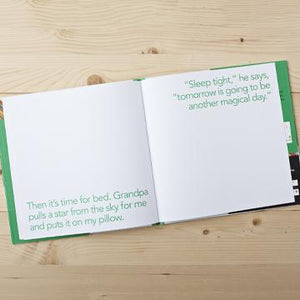 Then it's time for bed. Grandpa
pulls a star from the sky for me
and puts it on my pillow.
“Sleep tight,” he says,
“tomorrow is going to be
another magical day.”